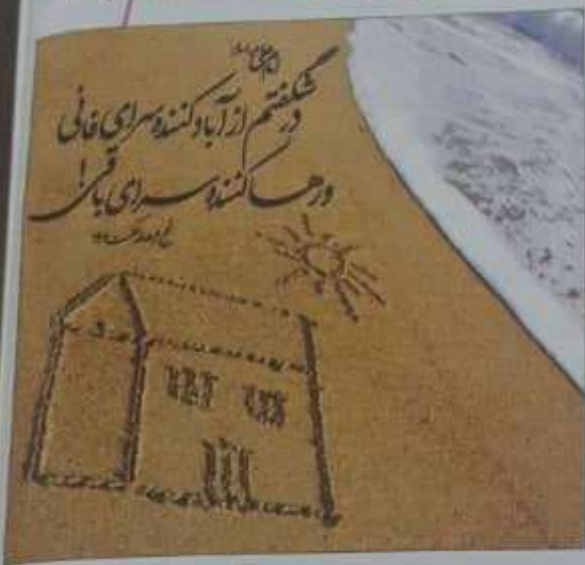 امام علی
در شگفتم از آباد کننده سرای فانی
و رها کننده سرای باقی!